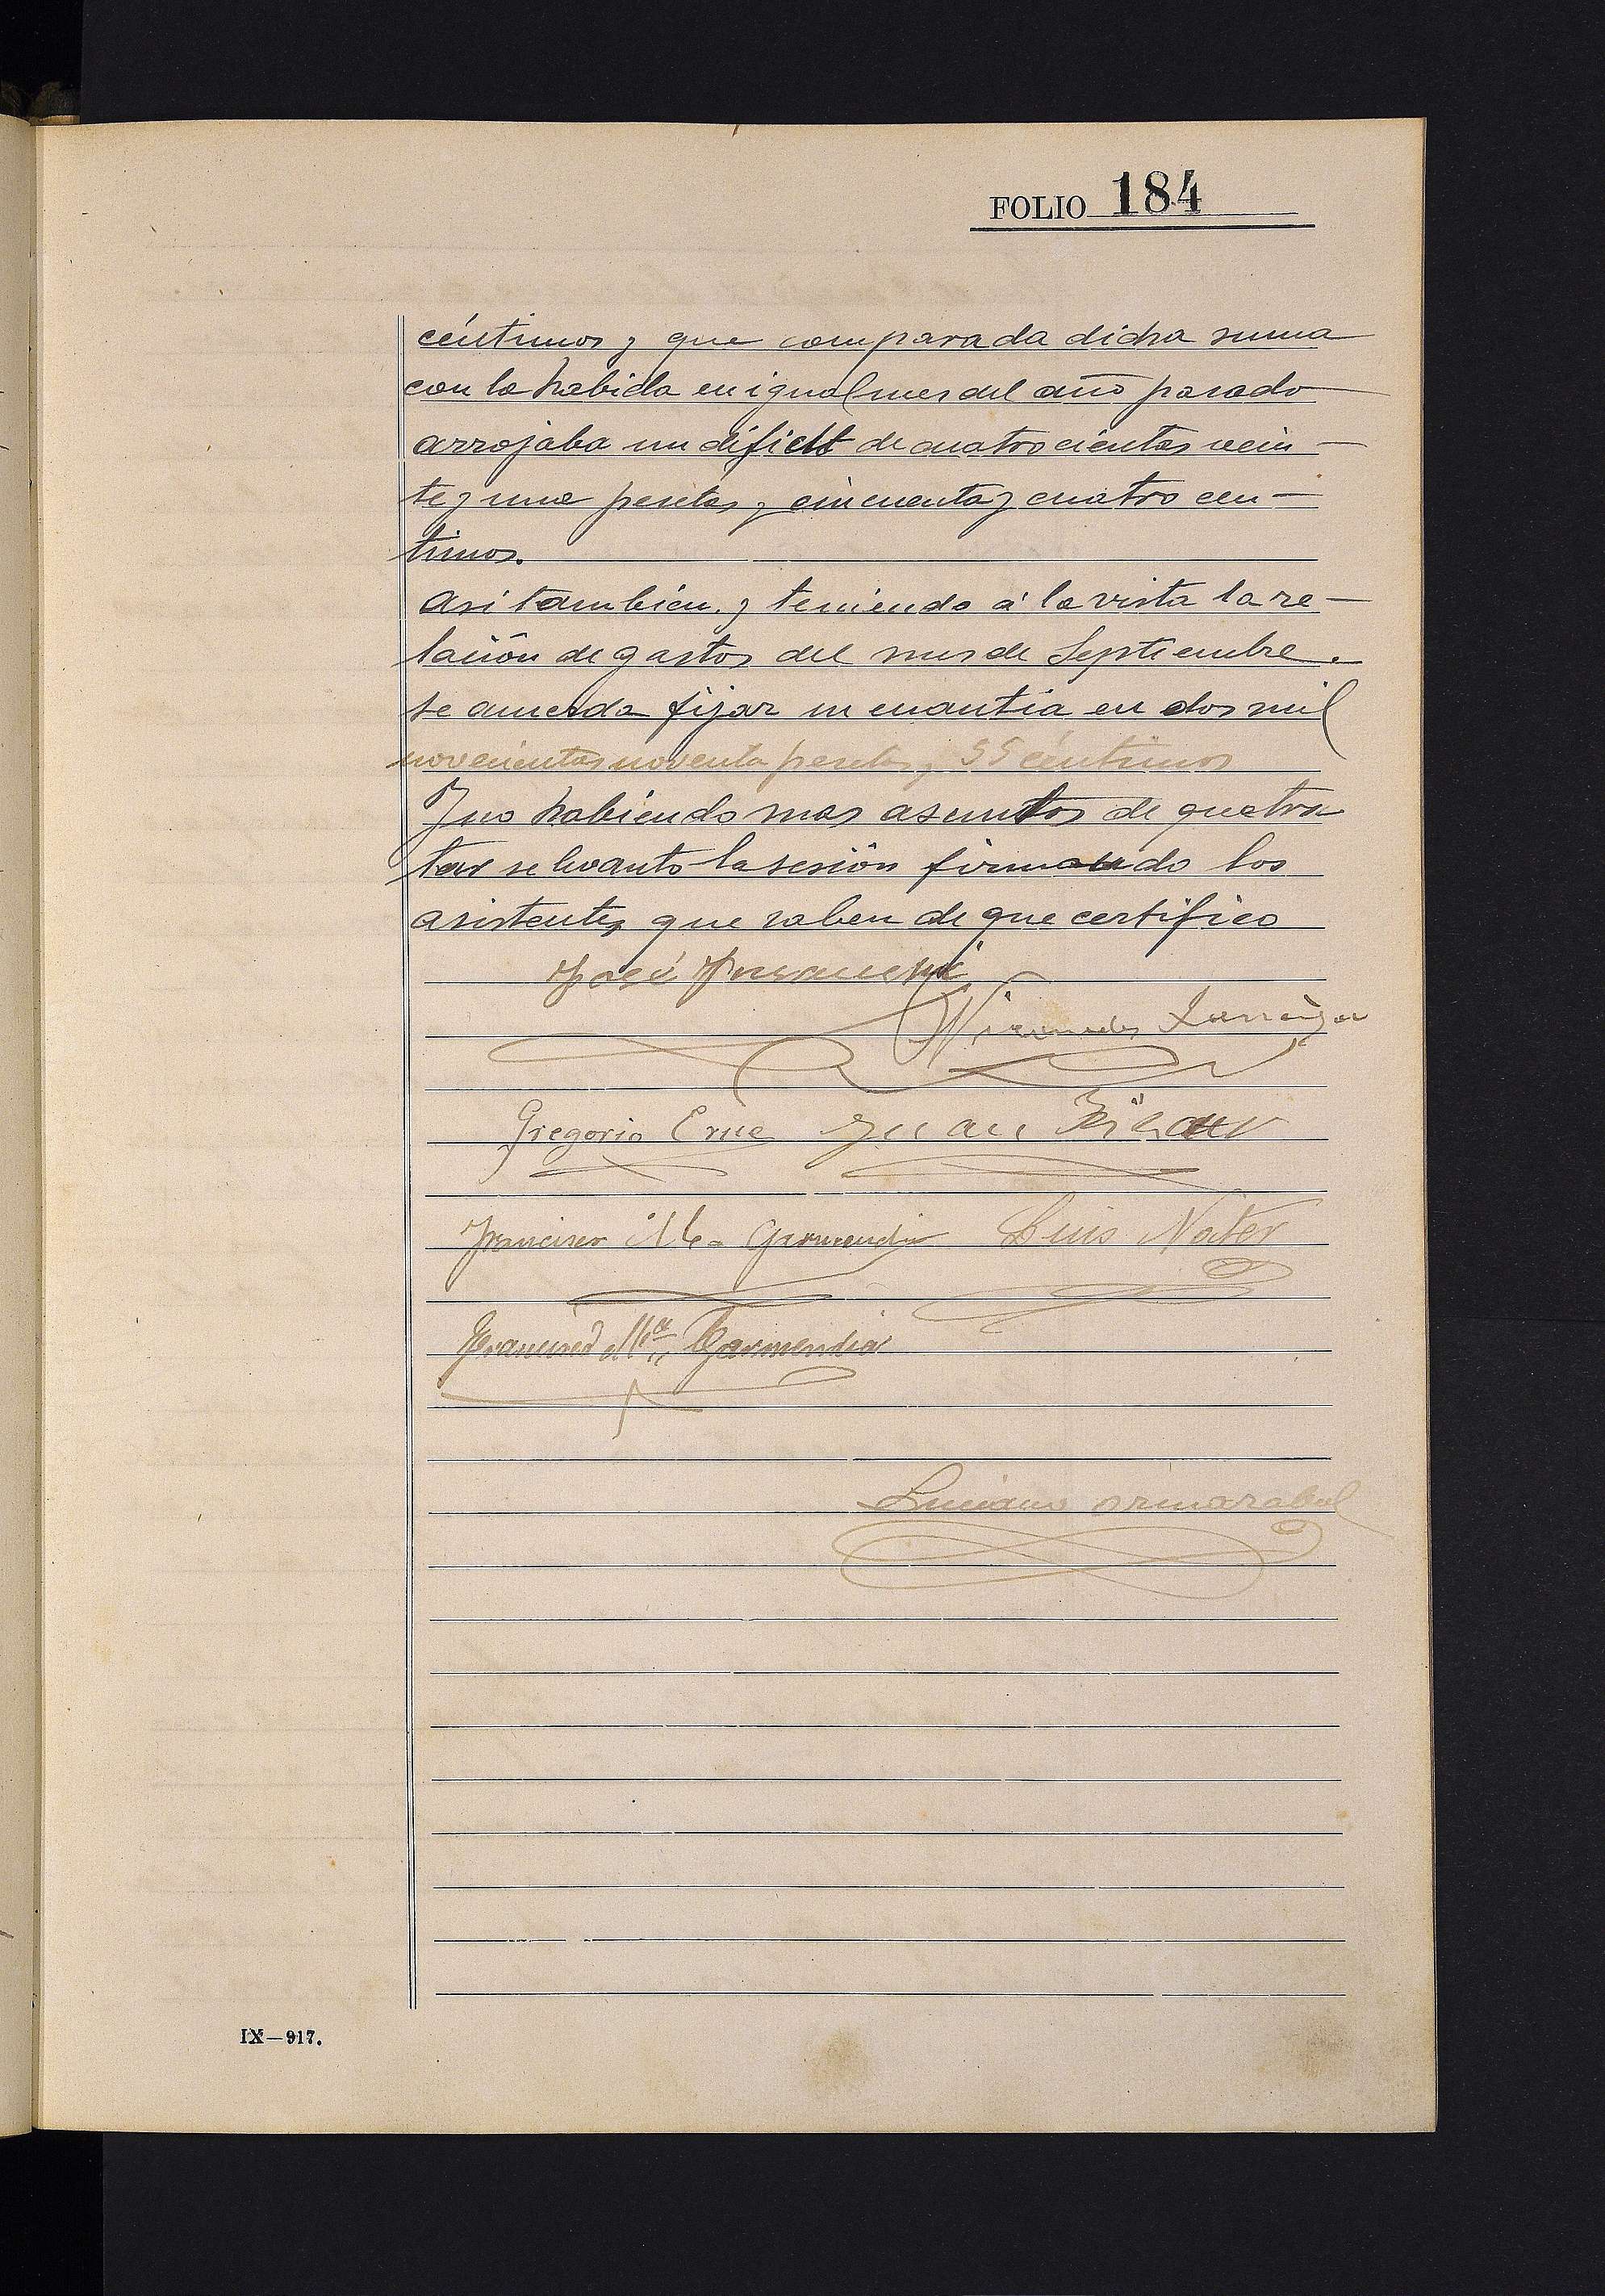 FOLIO 184
céntimos y que comparada dicha suma
con la habida en igual mes del año pasado
arrojaba un déficit de cuatrocientas vein-
te y una pesetas y cincuenta y cuatro cen-
timos.
Asi tambien y teniendo á la vista la re-
lación de gastos del mes de Septiembre.
se acuerda fijar su cuantia en dos mil
novecientas noventa pesetas y 55 céntimos
Y no habiendo mas asuntos de que tra
tar se levanto la sesión firmando los
asistentes que saben de que certifico
José
Larrañaga
Gregorio Juan
Francisco Ma Garmendia Luis
Francisco Mª Garmendia
Luciano Ormazabal
IX—917.